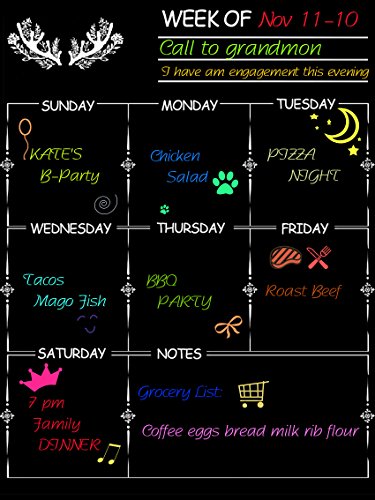 WEEK OF Nov 11-10
Call to grandmon
I have am engagement this evening
SUNDAY
KATE'S
B-Party
MONDAY
Chicken
Salad
TUESDAY
PIZZA
NIGHT
WEDNESDAY
Tacos
Mago Fish
THURSDAY
BBQ
PARTY
FRIDAY
Roast Beef
SATURDAY
7 pm
Family
DINNER
NOTES
Grocery List:
Coffee eggs bread milk rib flour